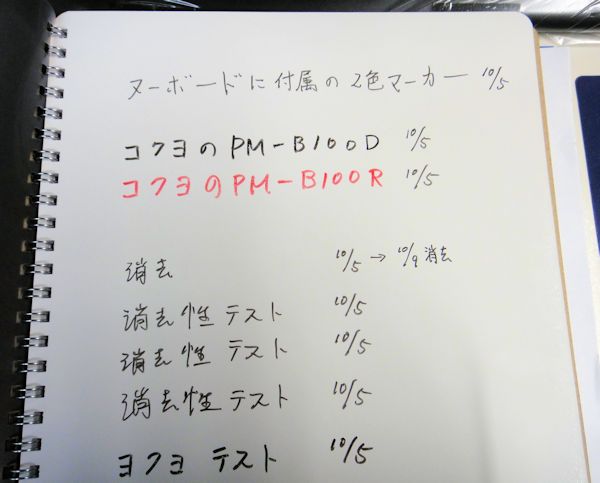 ヌーボードに付属の2色マーカー 10/5
コクヨのPM-B100D 10/5
コクヨのPM-B100R 10/5
消去 10/5 → 10/9 消去
消去性テスト 10/5
消去性テスト 10/5
消去性テスト 10/5
ヨクヨ テスト 10/5